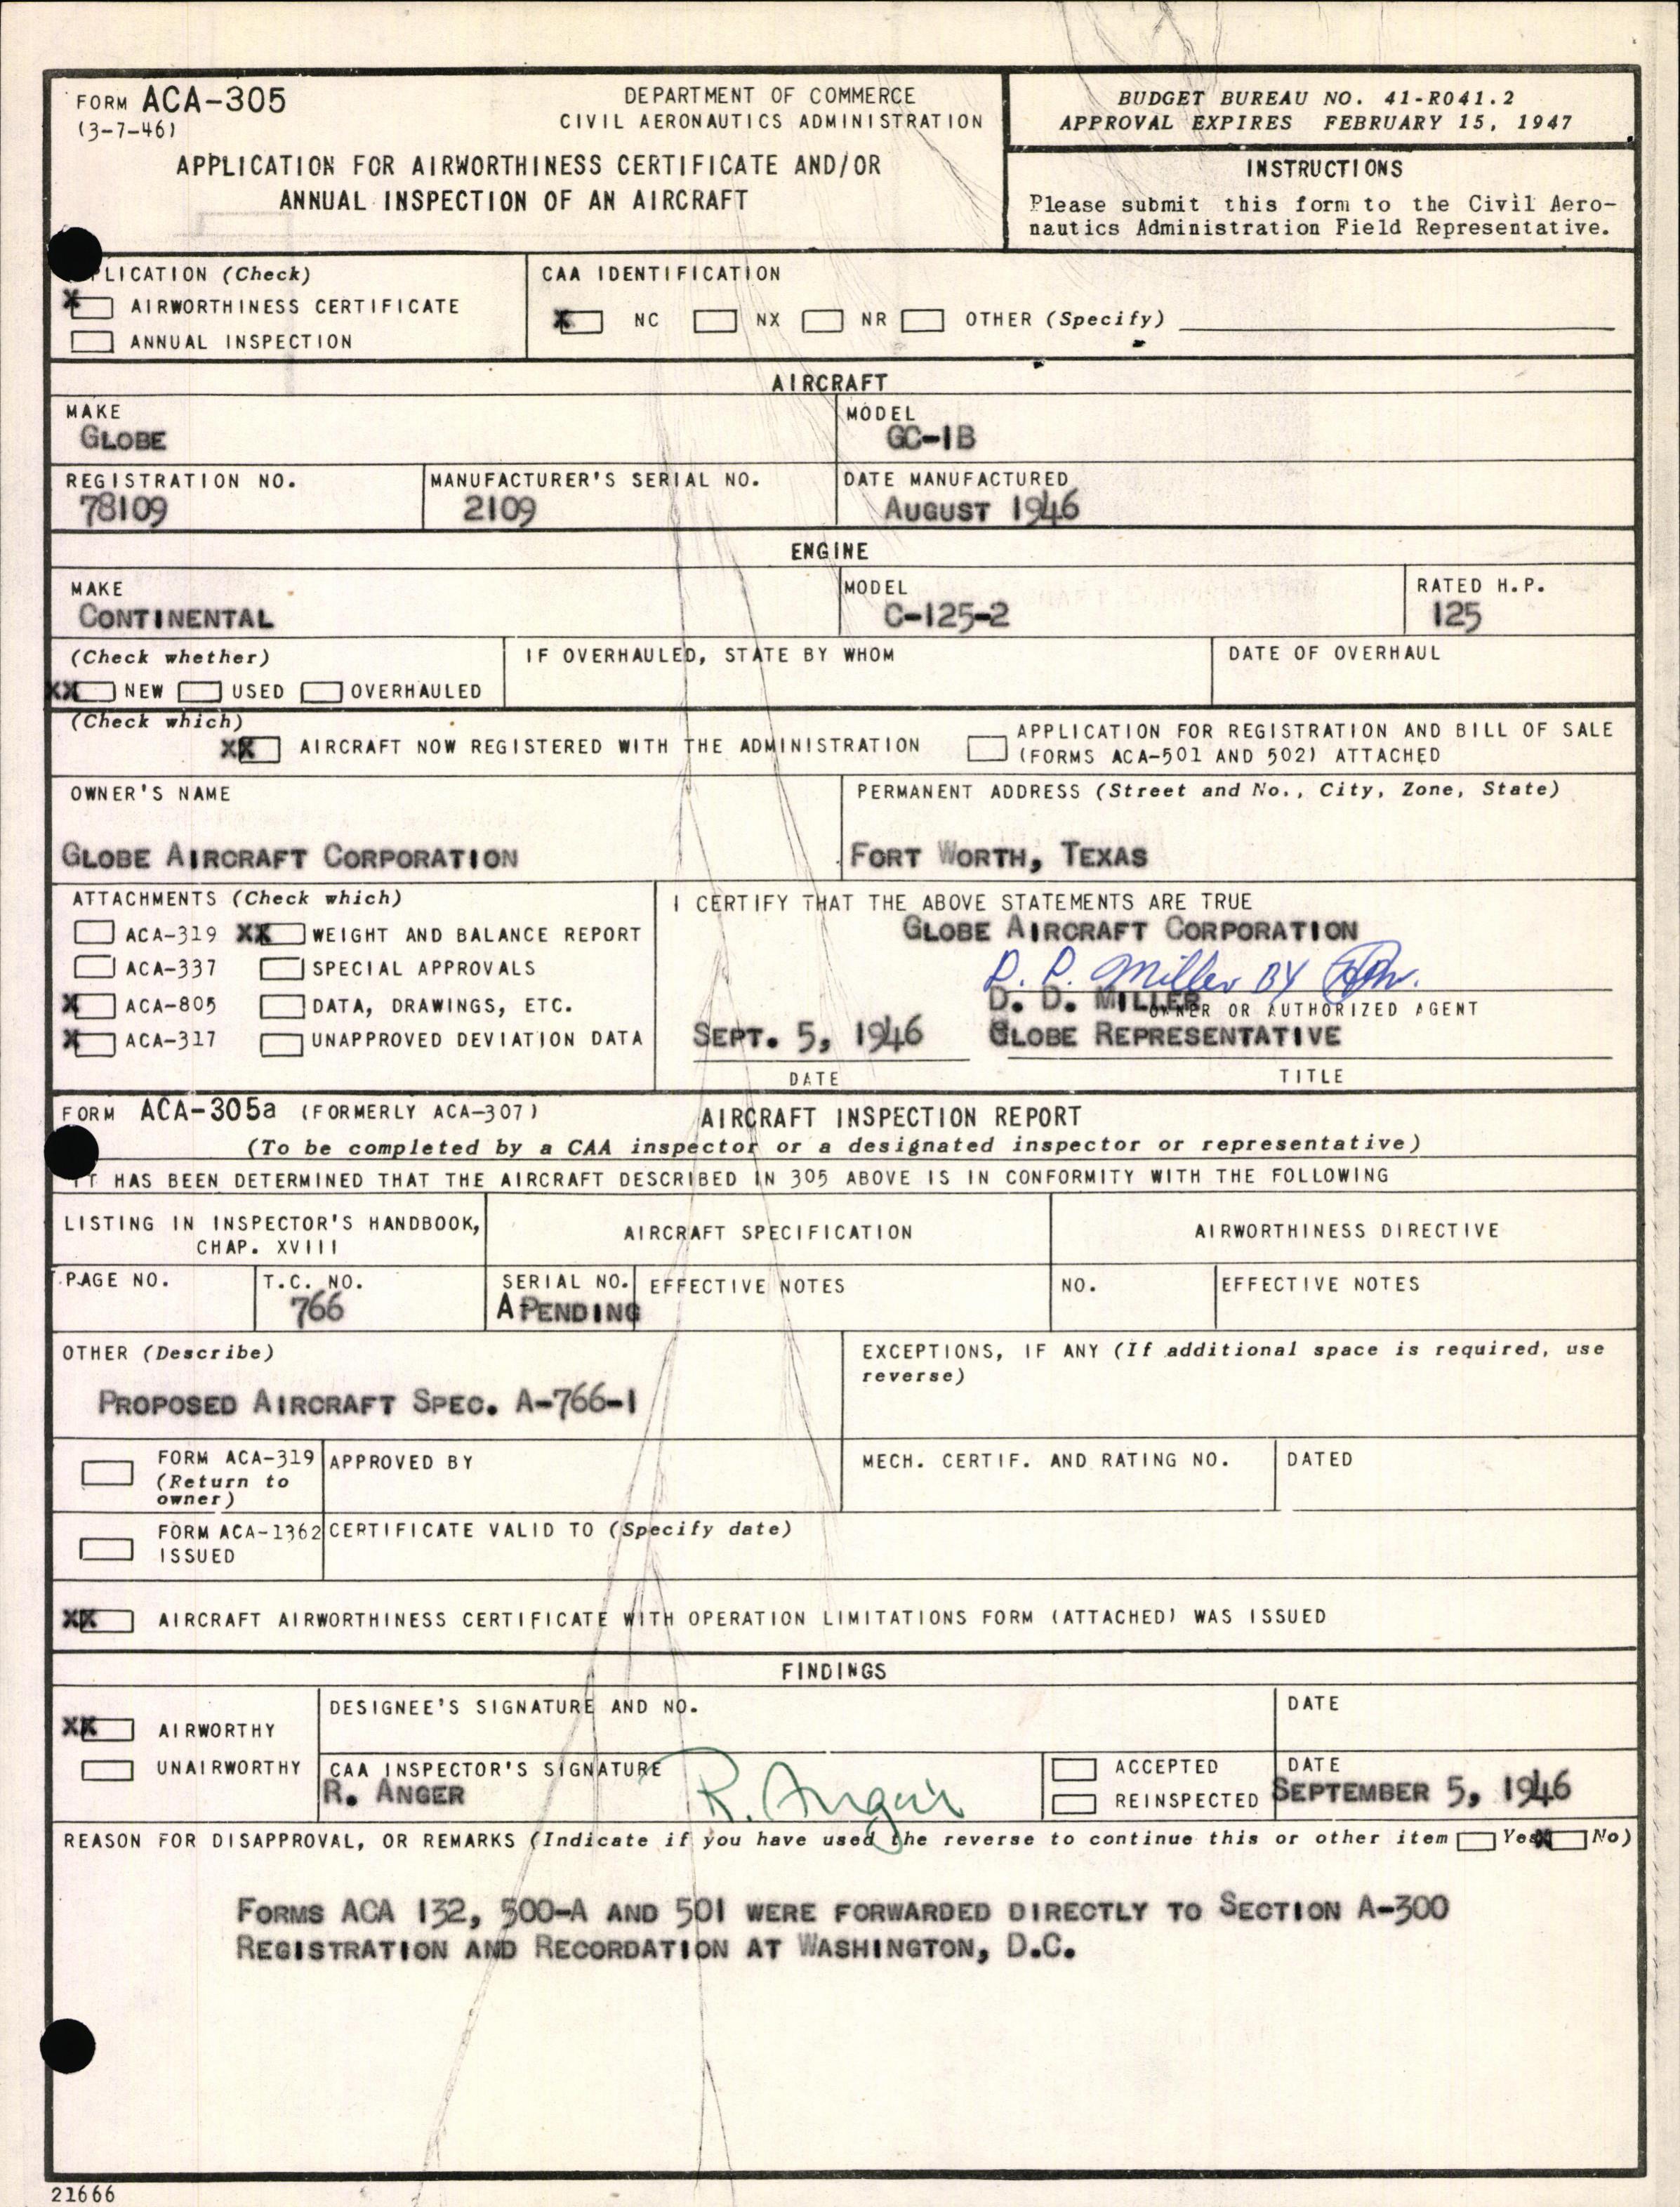 FORM ACA-305
(3-7-46)
DEPARTMENT OF COMMERCE
CIVIL AERONAUTICS ADMINISTRATION
APPLICATION FOR AIRWORTHINESS CERTIFICATE AND/OR
ANNUAL INSPECTION OF AN AIRCRAFT
BUDGET BUREAU NO. 41-R041.2
APPROVAL EXPIRES FEBRUARY 15, 1947
INSTRUCTIONS
Please submit this form to the Civil Aero-
nautics Administration Field Representative.
PLICATION (Check)
X AIRWORTHINESS CERTIFICATE
ANNUAL INSPECTION
CAA IDENTIFICATION
X NC NX NR OTHER (Specify)
AIRCRAFT
MAKE
GLOBE
MODEL
GC-1B
REGISTRATION NO.
78109
MANUFACTURER'S SERIAL NO.
2109
DATE MANUFACTURED
AUGUST 1946
ENGINE
MAKE
CONTINENTAL
MODEL
C-125-2
RATED H.P.
125
(Check whether)
XX NEW USED OVERHAULED
IF OVERHAULED, STATE BY WHOM
DATE OF OVERHAUL
(Check which)
XX AIRCRAFT NOW REGISTERED WITH THE ADMINISTRATION
APPLICATION FOR REGISTRATION AND BILL OF SALE
(FORMS ACA-501 AND 502) ATTACHED
OWNER'S NAME
GLOBE AIRCRAFT CORPORATION
PERMANENT ADDRESS (Street and No., City, Zone, State)
FORT WORTH, TEXAS
ATTACHMENTS (Check which)
ACA-319 XX WEIGHT AND BALANCE REPORT
ACA-337 SPECIAL APPROVALS
X ACA-805 DATA, DRAWINGS, ETC.
X ACA-317 UNAPPROVED DEVIATION DATA
I CERTIFY THAT THE ABOVE STATEMENTS ARE TRUE
GLOBE AIRCRAFT CORPORATION
D. D. Miller BY
D. D. MILLER
OWNER OR AUTHORIZED AGENT
SEPT. 5, 1946 GLOBE REPRESENTATIVE
DATE TITLE
FORM ACA-305a (FORMERLY ACA-307) AIRCRAFT INSPECTION REPORT
(To be completed by a CAA inspector or a designated inspector or representative)
IT HAS BEEN DETERMINED THAT THE AIRCRAFT DESCRIBED IN 305 ABOVE IS IN CONFORMITY WITH THE FOLLOWING
LISTING IN INSPECTOR'S HANDBOOK,
CHAP. XVIII
AIRCRAFT SPECIFICATION
AIRWORTHINESS DIRECTIVE
PAGE NO.
T.C. NO.
766
SERIAL NO.
A PENDING
EFFECTIVE NOTES
NO.
EFFECTIVE NOTES
OTHER (Describe)
PROPOSED AIRCRAFT SPEC. A-766-1
EXCEPTIONS, IF ANY (If additional space is required, use
reverse)
FORM ACA-319
(Return to
owner)
APPROVED BY
MECH. CERTIF. AND RATING NO.
DATED
FORM ACA-1362
ISSUED
CERTIFICATE VALID TO (Specify date)
XX AIRCRAFT AIRWORTHINESS CERTIFICATE WITH OPERATION LIMITATIONS FORM (ATTACHED) WAS ISSUED
FINDINGS
XX AIRWORTHY
UNAIRWORTHY
DESIGNEE'S SIGNATURE AND NO.
DATE
CAA INSPECTOR'S SIGNATURE
R. ANGER R. Anger
ACCEPTED
REINSPECTED
DATE
SEPTEMBER 5, 1946
REASON FOR DISAPPROVAL, OR REMARKS (Indicate if you have used the reverse to continue this or other item Yes X No)
FORMS ACA 132, 500-A AND 501 WERE FORWARDED DIRECTLY TO SECTION A-300
REGISTRATION AND RECORDATION AT WASHINGTON, D.C.
21666